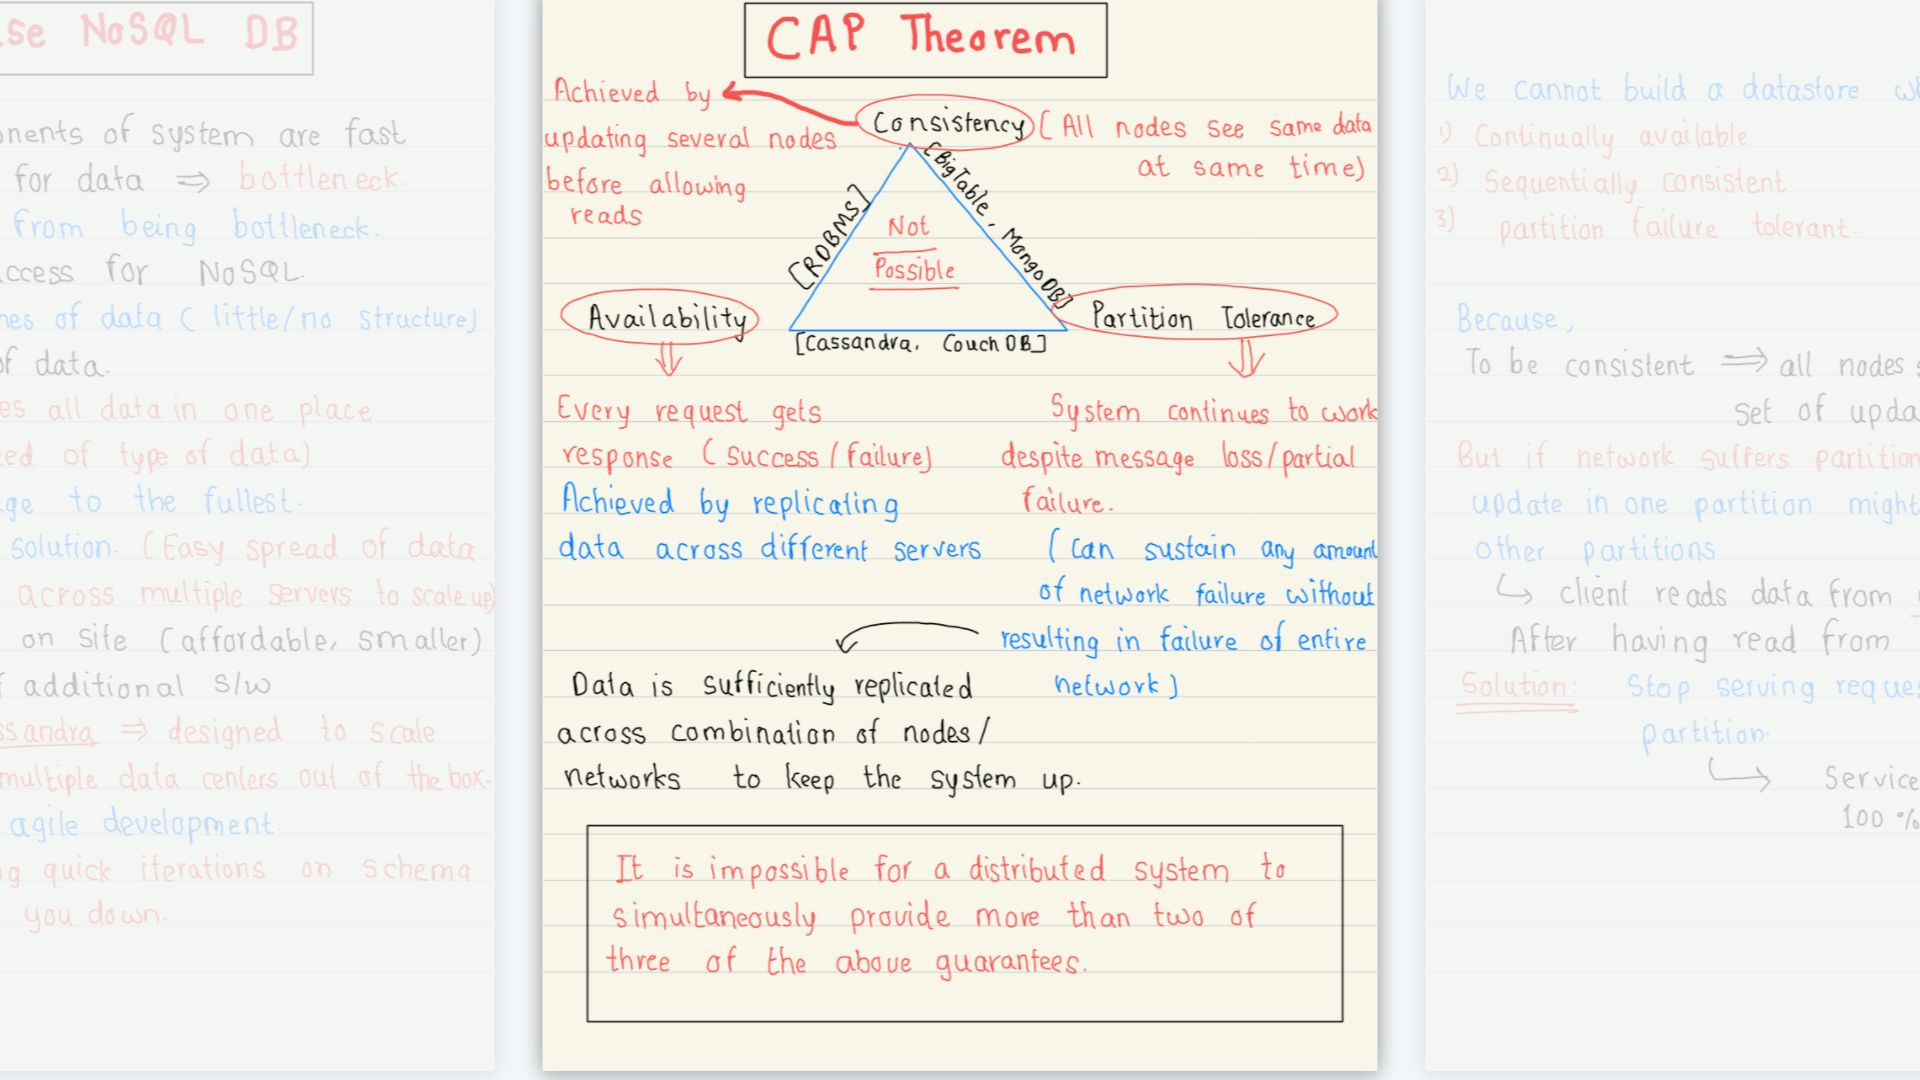 se NoSQL DB
nents of system are fast
for data ⇒ bottleneck.
from being bottleneck.
ccess for NoSQL.
nes of data ( little/no structure)
of data.
es all data in one place
ed of type of data)
ge to the fullest.
solution. (Easy spread of data
across multiple servers to scale up)
on site (affordable, smaller)
f additional S/w
ssandra ⇒ designed to scale
multiple data centers out of the box.
agile development.
g quick iterations on schema
you down.
CAP Theorem
Achieved by
updating several nodes
before allowing
reads
Consistency
( All nodes see same data
at same time)
[RDBMS]
[BigTable, MongoDB]
Not
Possible
Availability
Partition Tolerance
[Cassandra, CouchDB]
Every request gets
response ( success / failure)
Achieved by replicating
data across different servers
System continues to work
despite message loss/partial
failure.
( Can sustain any amount
of network failure without
resulting in failure of entire
network )
Data is sufficiently replicated
across combination of nodes/
networks to keep the system up.
It is impossible for a distributed system to
simultaneously provide more than two of
three of the above guarantees.
We cannot build a datastore
1) Continually available
2) Sequentially consistent
3) partition failure tolerant.
Because,
To be consistent ⇒ all nodes s
set of upda
But if network suffers partition
update in one partition might
other partitions
↳ client reads data from
After having read from
Solution: Stop serving reques
partition.
↳ Service
100 %